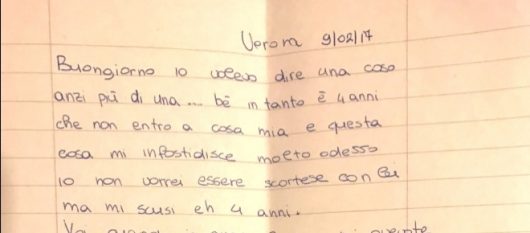 Verona 9/02/17
Buongiorno io volevo dire una cosa
anzi più di una... bè in tanto è 4 anni
che non entro a casa mia e questa
cosa mi infastidisce molto adesso
io non vorrei essere scortese con lei
ma mi scusi eh 4 anni.